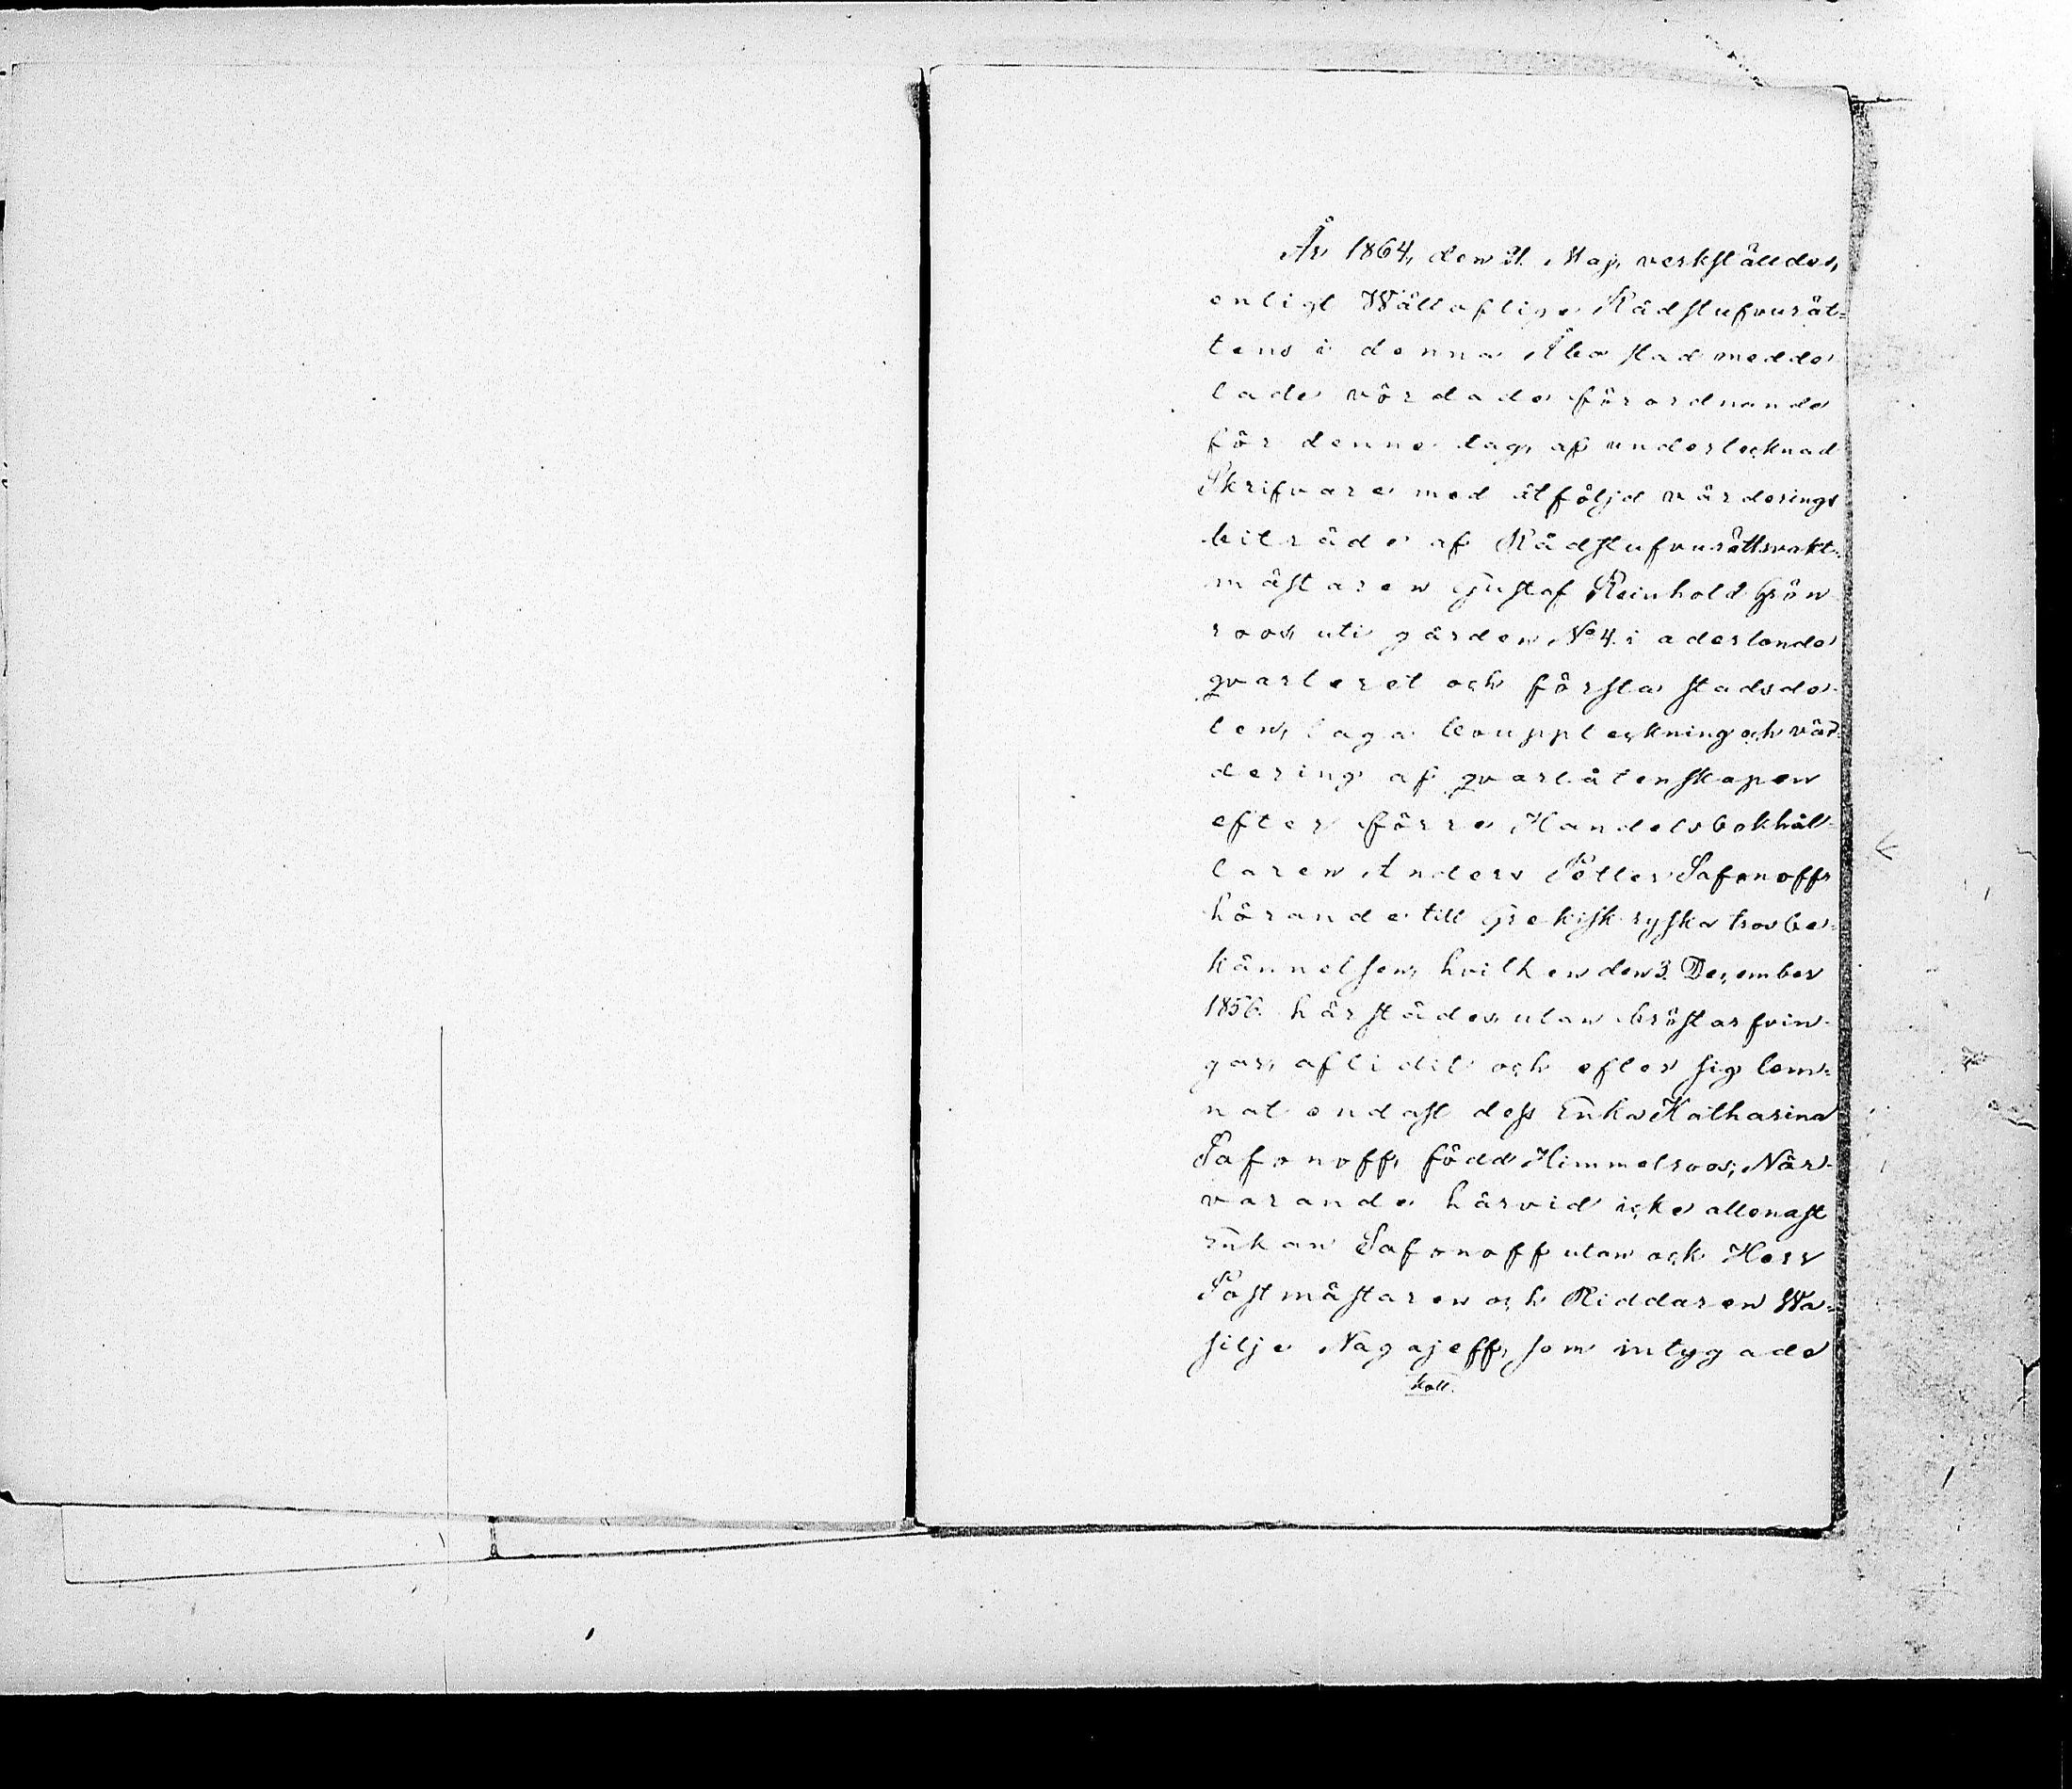 År 1864, den 21. Maj, verkställdes,
enligt Wällofliga Rådstufvurät=
tens i denna Åbo stad medde
lade vördade förordnande
för denne dag, af undertecknad
Skrifvare med åtföljd värderings
biträde af Rådstufvurättsvakt=
mästaren Gustaf Reinhold Grön
roos, uti gården No 4. i aderlonde
qvarteret och första stadsde-
len, laga bouppteckning och vär=
dering af qvarlåtenskapen
efter förre Handelsbokhål-
laren Anders Petter Safonoff,
hörande till Grekisk ryska trosbe=
kännelsen, hvilken den 3. December
1856. härstädes, utan bröstarfvin-
gar, aflidit och efter sig lem=
nat endast dess Enka Katharina
Safonoff, född Himmelroos; När-
varande härvid icke allenast
Enkan Safonoff utan ock Herr
Postmästaren och Riddaren Wa=
silje Nagajeff, som intygade